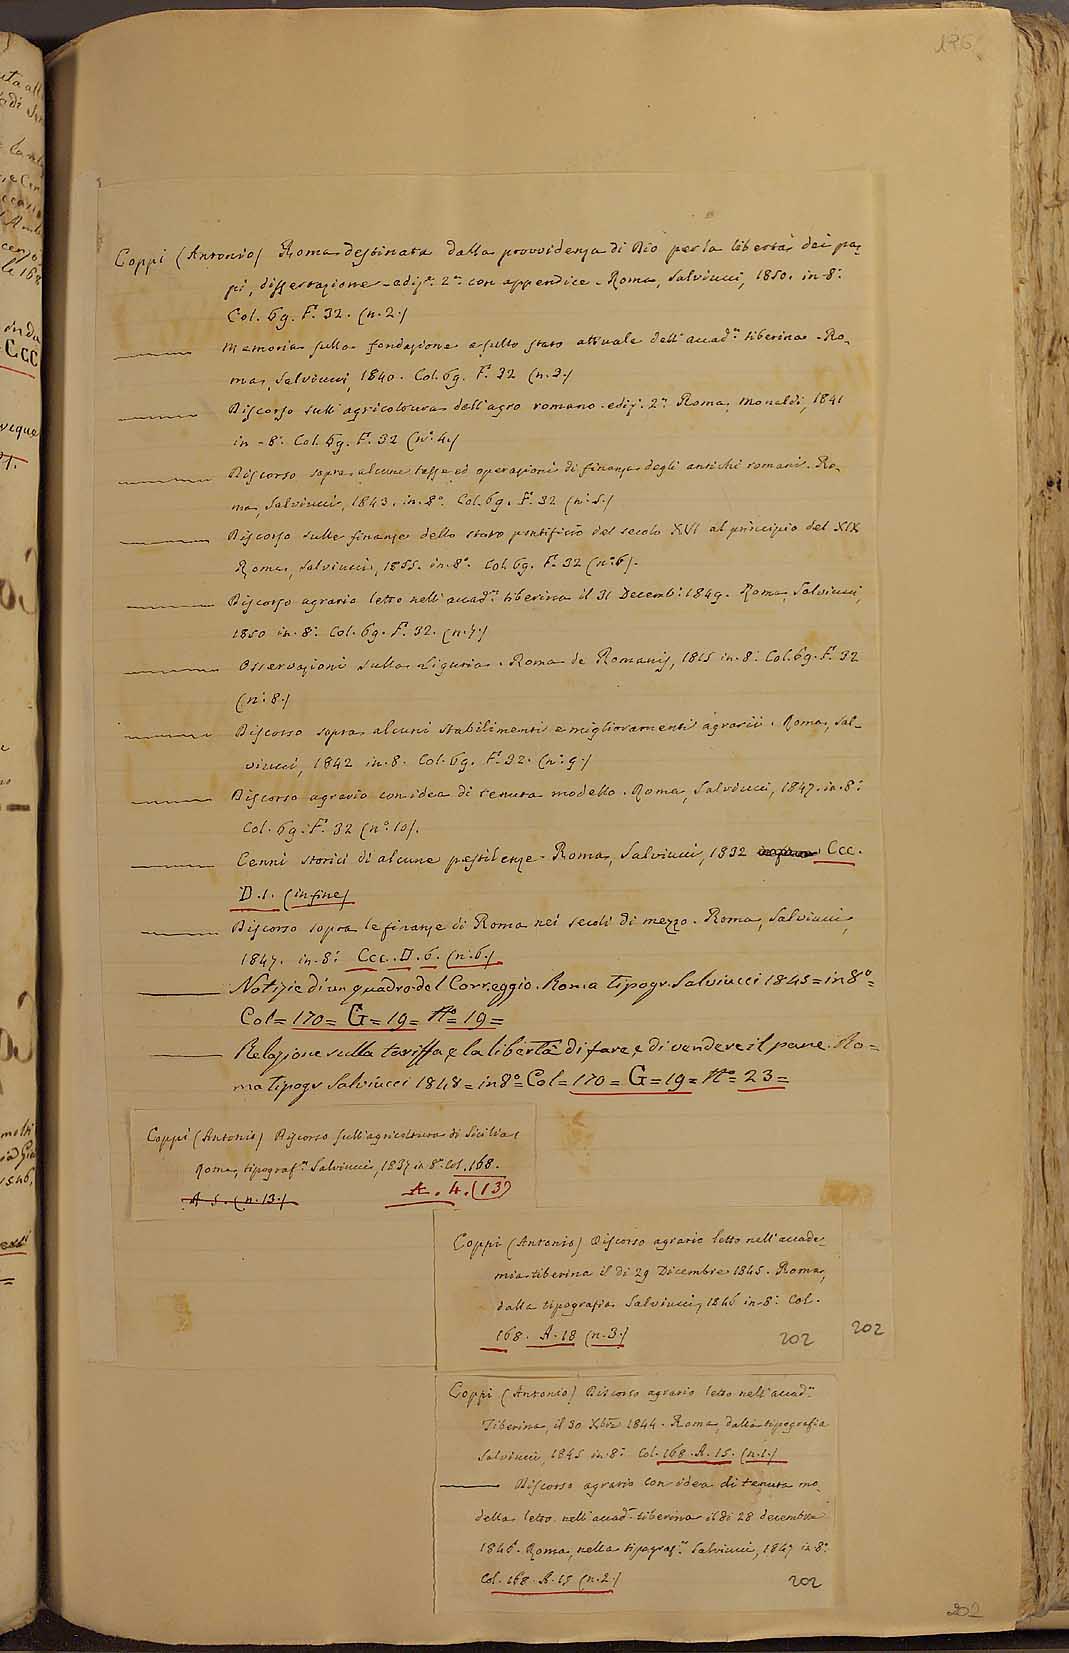 196
Coppi (Antonio) Roma destinata dalla provvidenza di Dio per la libertà dei pa-
pi, dissertazione - ediz.e 2.a con appendice - Roma, Salviucci, 1850. in-8.°
Col. 69. F. 32. (n. 2.)
——— Memoria sulla fondazione e sullo stato attuale dell'accad.a tiberina - Ro-
ma, Salviucci, 1840. Col. 69. F. 32 (n. 3.)
——— Discorso sull'agricoltura dell'agro romano. ediz. 2.a Roma, Monaldi, 1841
in-8.° Col. 69. F. 32 (n.° 4.)
——— Discorso sopra alcune tasse ed operazioni di finanza degli antichi romani. Ro-
ma, Salviucci, 1843. in. 8.° Col. 69. F. 32 (n.° 5.)
——— Discorso sulle finanze dello stato pontificio del secolo XVI al principio del XIX
Roma, Salviucci, 1855. in. 8.° Col. 69. F. 32 (n.° 6).
——— Discorso agrario letto nell'accad.a tiberina il 31 Decemb. 1849. Roma, Salviucci,
1850 in. 8.° Col. 69. F. 32. (n. 7.)
——— Osservazioni sulla Liguria. Roma de Romanis, 1815 in. 8.° Col. 69. F. 32
(n.° 8.)
——— Discorso sopra alcuni stabilimenti e miglioramenti agrarii. Roma, Sal-
viucci, 1842 in. 8. Col. 69. F. 32. (n.° 9.)
——— Discorso agrario con idea di tenuta modello. Roma, Salviucci, 1847. in. 8.°
Col. 69. F. 32 (n.° 10).
——— Cenni storici di alcune pestilenze. Roma, Salviucci, 1832 Ccc.
D. 1. (in fine)
——— Discorso sopra le finanze di Roma nei secoli di mezzo. Roma, Salviucci,
1847. in. 8.° Ccc. D. 6. (n. 6.)
——— Notizie di un quadro del Correggio. Roma tipogr. Salviucci 1845 = in 8° =
Col = 170 = G = 19 = N° = 19 =
——— Relazione sulla tariffa, e la libertà di fare, e di vendere il pane. Ro =
ma tipogr Salviucci 1848 = in 8° = Col = 170 = G = 19 = N° = 23 =
Coppi (Antonio) Discorso sull'agricoltura di Sicilia
Roma, tipograf.a Salviucci, 1837 in 8.° Col. 168.
A. 5. (n. 13.) A. 4. (13)
Coppi (Antonio) Discorso agrario letto nell'accade-
mia tiberina il dì 29 Dicembre 1845. Roma,
dalla tipografia Salviucci, 1846 in-8.° Col.
168. A. 18 (n. 3.) 202
202
Coppi (Antonio) Discorso agrario letto nell'accad.a
Tiberina, il 30 Xbre 1844. Roma, dalla tipografia
Salviucci, 1845 in. 8.° Col. 168. A. 15. (n. 1.)
——— Discorso agrario con idea di tenuta mo-
della letto nell'accad.a tiberina il dì 28 decembre
1846. Roma, nella tipograf.a Salviucci, 1847 in 8.°
Col. 168. A. 15 (n. 2.) 202
202